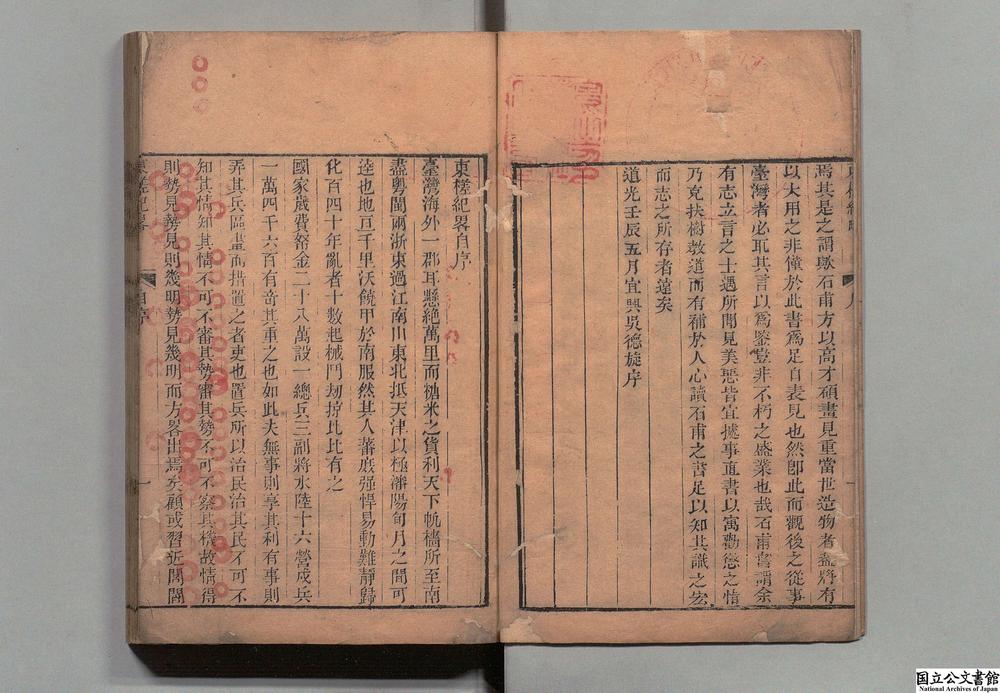 焉其是之謂歟石甫方以高才碩畫見重當世造物者蓋將有
以大用之非僅於此書爲足自表見也然卽此而觀後之從事
臺灣者必取其言以爲鑒豈非不朽之盛業也哉石甫嘗謂余
有志立言之士遇所聞見美惡皆宜據事直書以寓勸懲之情
乃克扶樹敎道而有補於人心讀石甫之書足以知其識之宏
而志之所存者遠矣
道光壬辰五月宜興吳德旋序
東槎紀畧自序
臺灣海外一郡耳懸絕萬里而糖米之貨利天下帆檣所至南
盡粵閩兩浙東過江南川東北抵天津以極瀋陽旬月之間可
達也地亘千里沃饒甲於南服然其人蕃庶强悍易動難靜歸
化百四十年亂者十數起械鬥刧掠比比有之
國家歲費帑金二十八萬設一總兵三副將水陸十六營戍兵
一萬四千六百有奇其重之也如此夫無事則享其利有事則
弄其兵區畫而措置之者吏也置兵所以治民治其民不可不
知其情知其情不可不審其勢審其勢不可不察其機故情得
則勢見勢見則幾明勢見幾明而方畧出焉矣顧或習近閭閻
東槎紀畧
自序
一
国立公文書館
National Archives of Japan